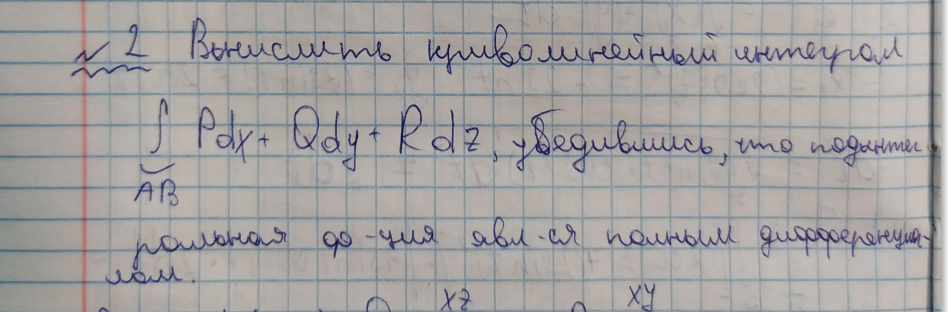 № 2 Вычислить криволинейный интеграл
∫ Pdx + Qdy + Rdz, убедившись, что подынтег-
AB
ральная ф-ция явл-ся полным дифференциа-
лом.
xz xy